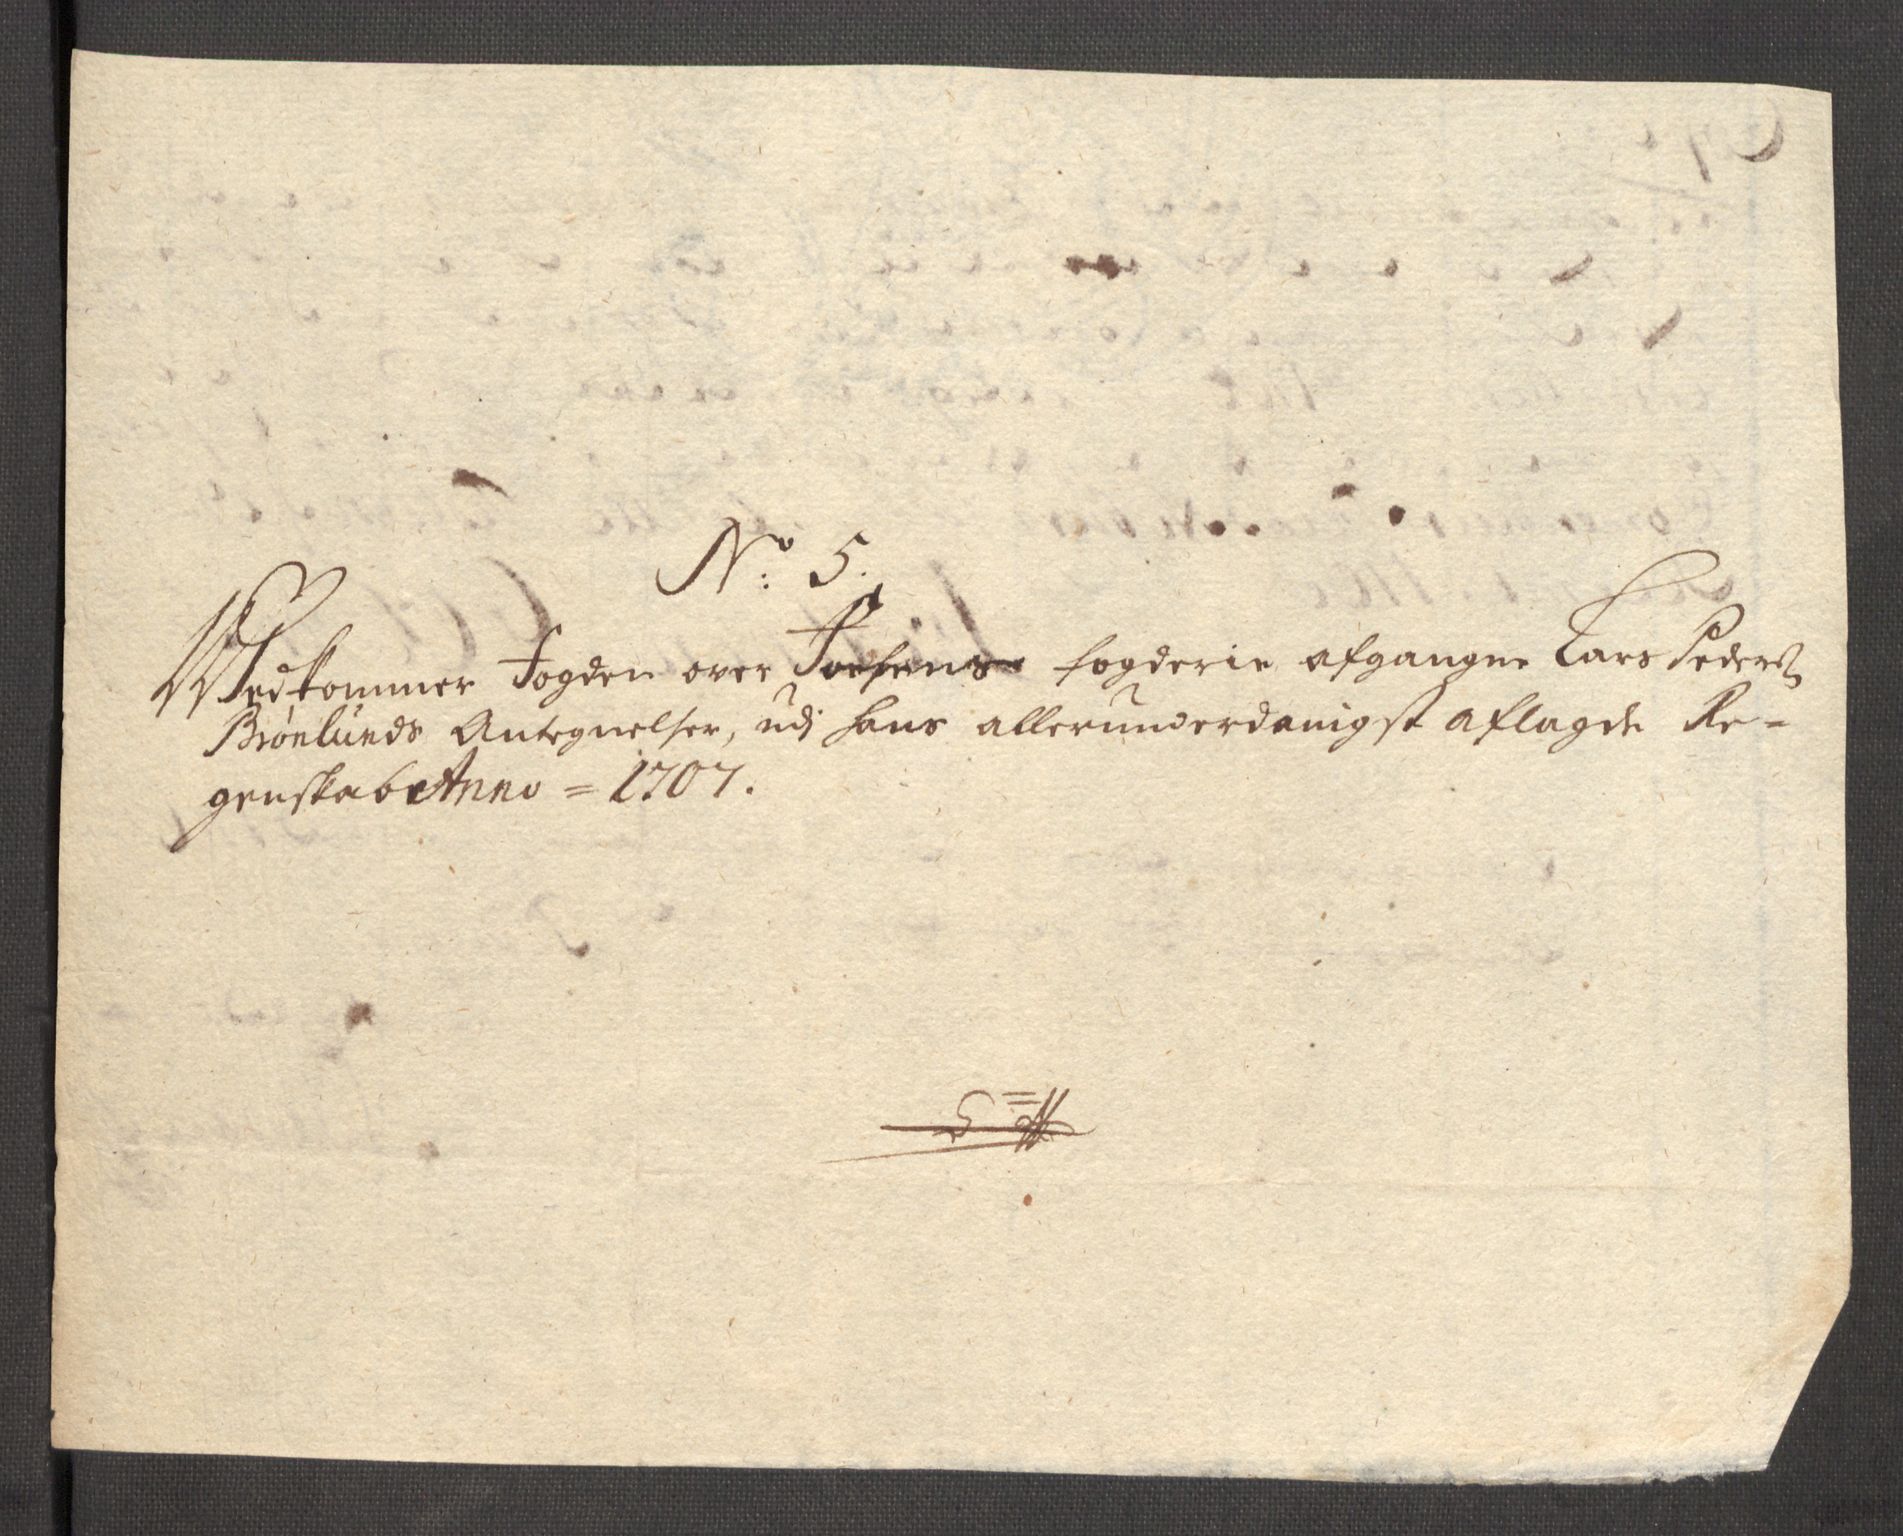 No: 5.
Vedkommer Fogden over Fosens fogderie afgangne Lars Peders:
Brønlunds Antegnelser, udj hans allerunderdanigst aflagde Re=
genskab Anno = 1707.